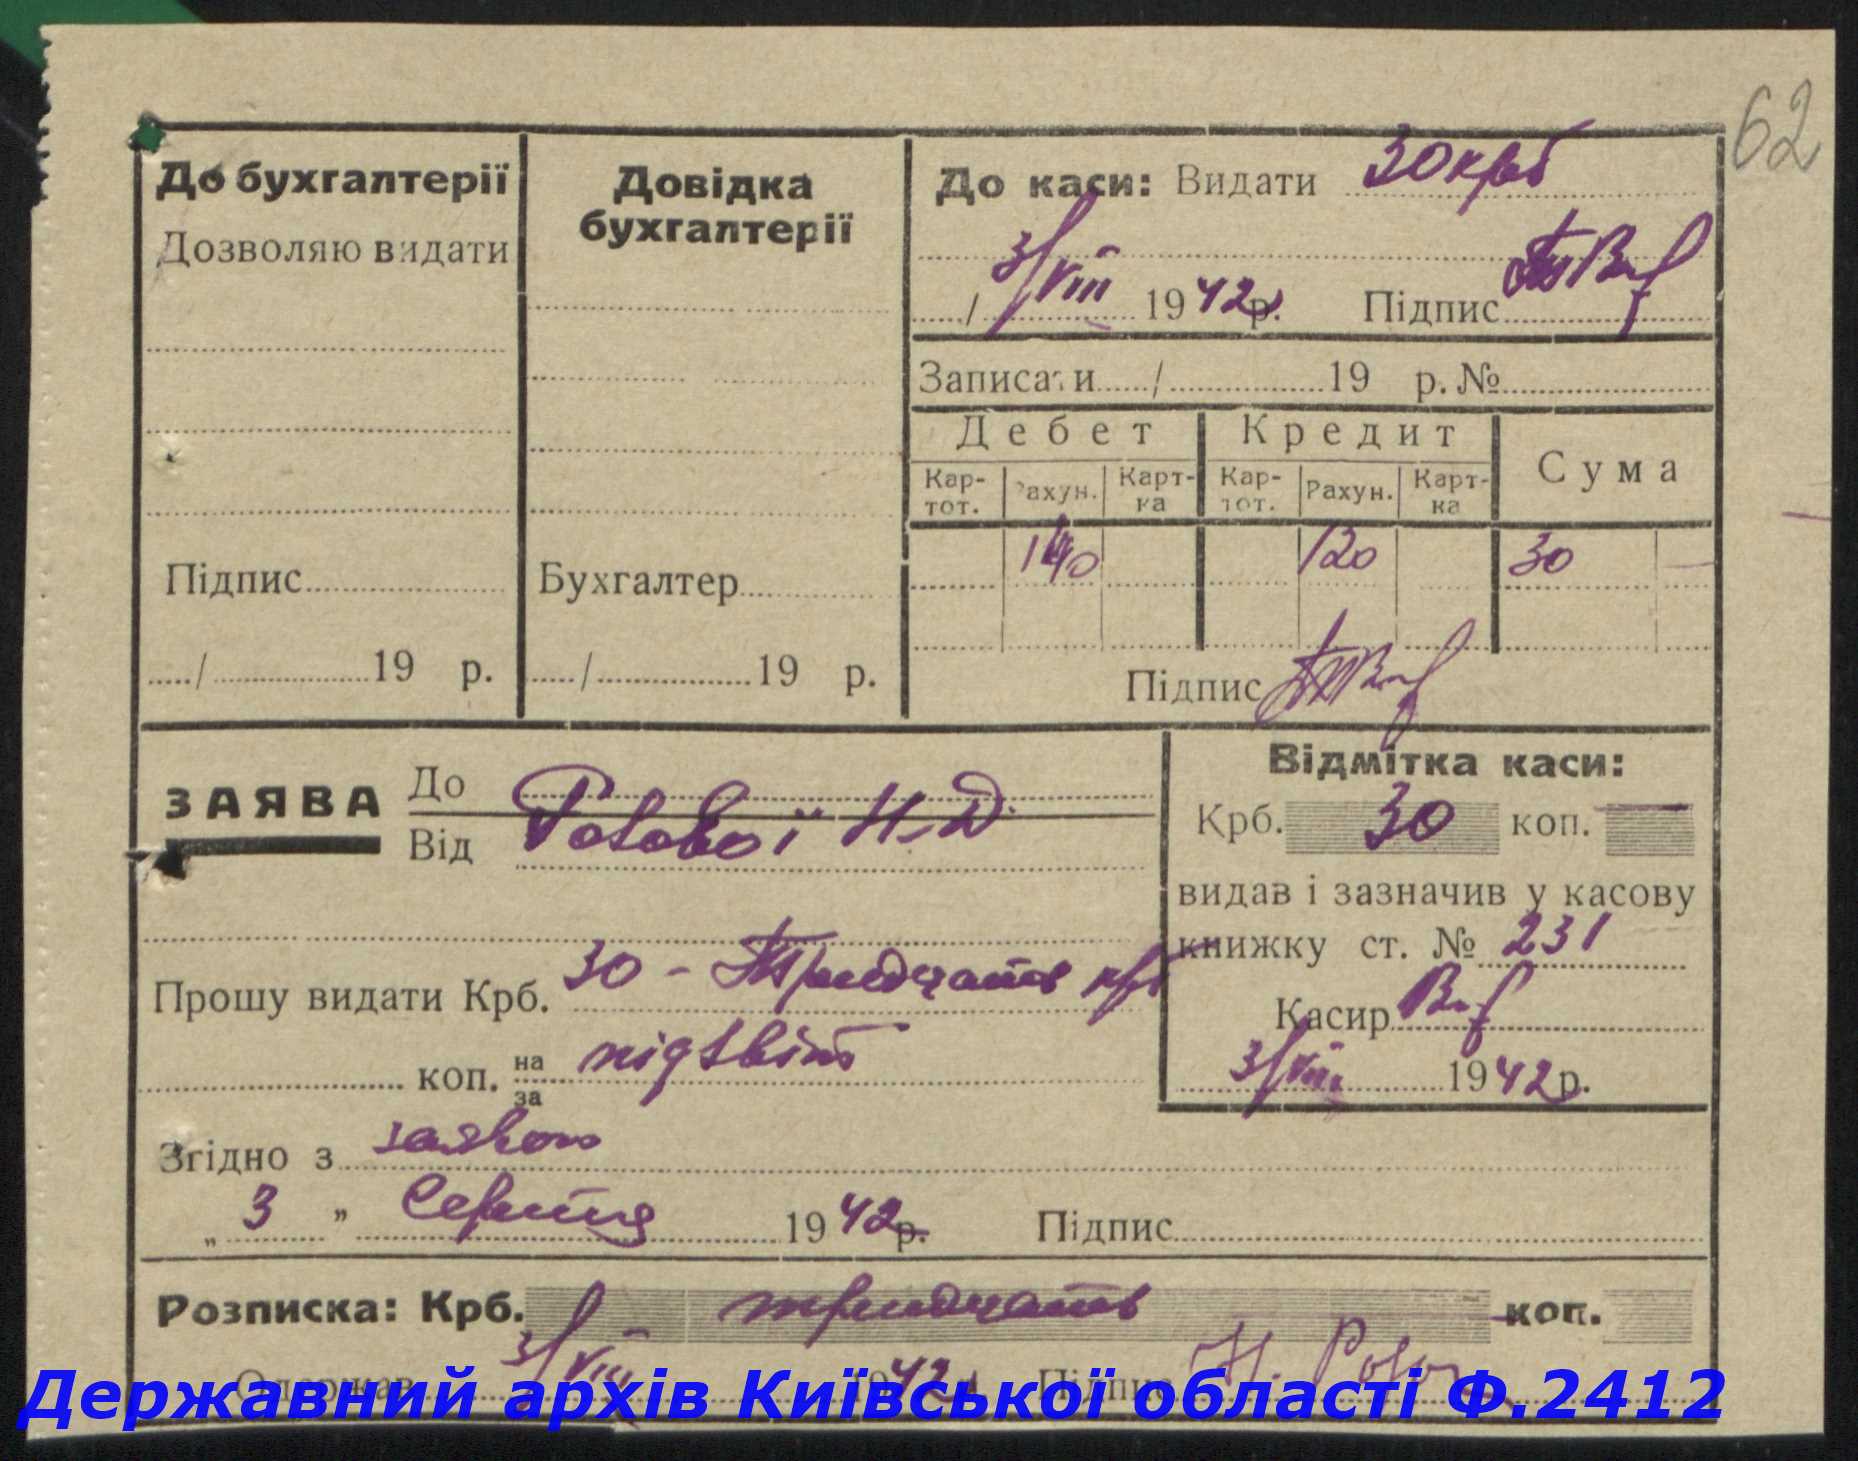 62
До бухгалтерії
Дозволяю видати
Підпис
/ 19 р.
Довідка
бухгалтерії
Бухгалтер
/ 19 р.
До каси: Видати 30 крб
/ 3/VIII 1942р. Підпис
Записати / 19 р. №
Дебет Кредит Сума
Кар-тот. Рахун. Карт-ка Кар-тот. Рахун. Карт-ка
140 120 30 —
Підпис
ЗАЯВА До
Від Н. Д.
Прошу видати Крб. 30 - Тридчать крб
коп. на/за
Згідно з заявою
„ 3 " Серпня 1942р. Підпис
Відмітка каси:
Крб. 30 коп. —
видав і зазначив у касову
книжку ст. № 231
Касир
3/VIII 1942р.
Розписка: Крб. тридчать коп.
Одержав 3/VIII 1942 Підпис Н.
Державний архів Київської області Ф.2412